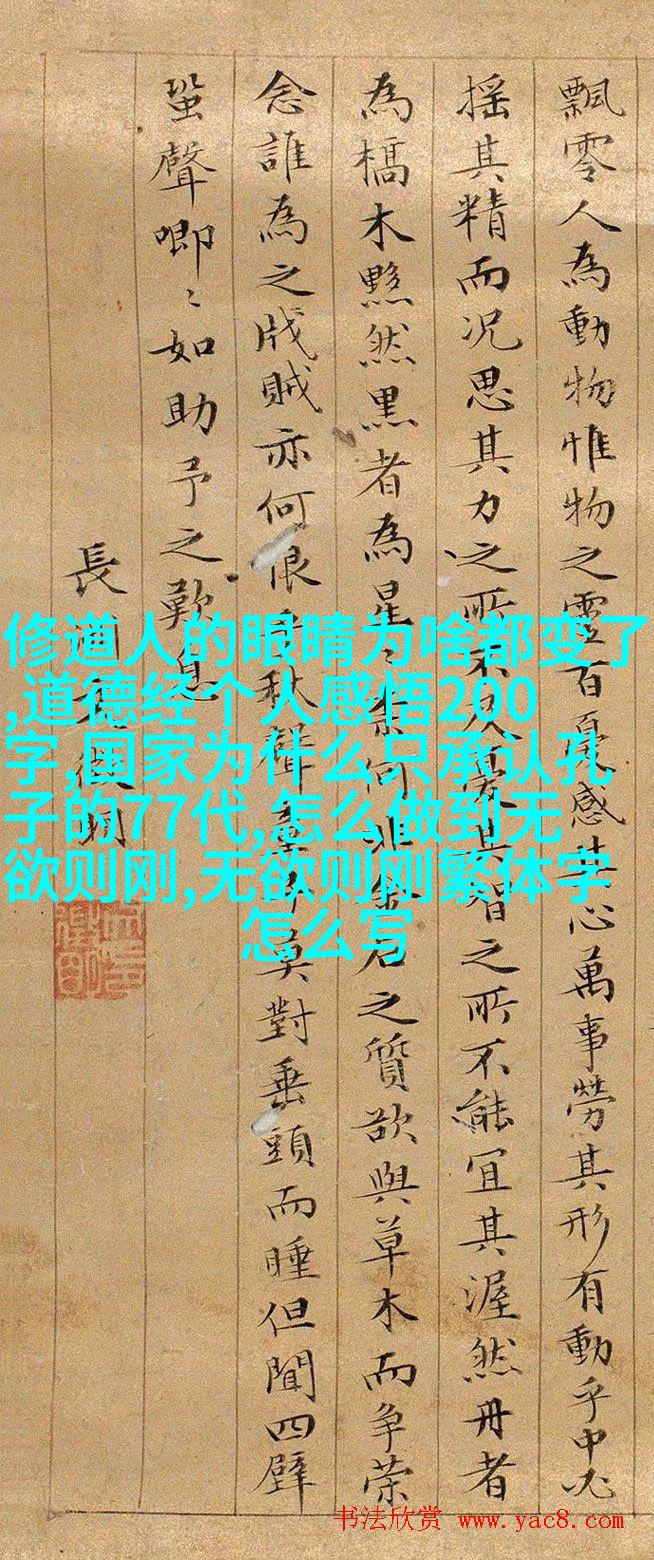 飄零人為動物惟物之靈百憂感其心萬事勞其形有動乎中必
搖其精而況思其力之所不及憂其智之所不能宜其渥然丹者
為槁木黟然黑者為星〻奈何非金石之質欲與草木而爭榮
念誰為之戕賊亦何恨乎秋聲童子莫對垂頭而睡但聞四壁
蛩聲唧〻如助予之歎息
長洲文徵明
修道人的眼睛为啥都变了
,道德经个人感悟200
字,国家为什么只承认孔
子的77代,怎么做到无
欲则刚,无欲则刚繁体字
怎么写
书法欣赏 www.yac8.com